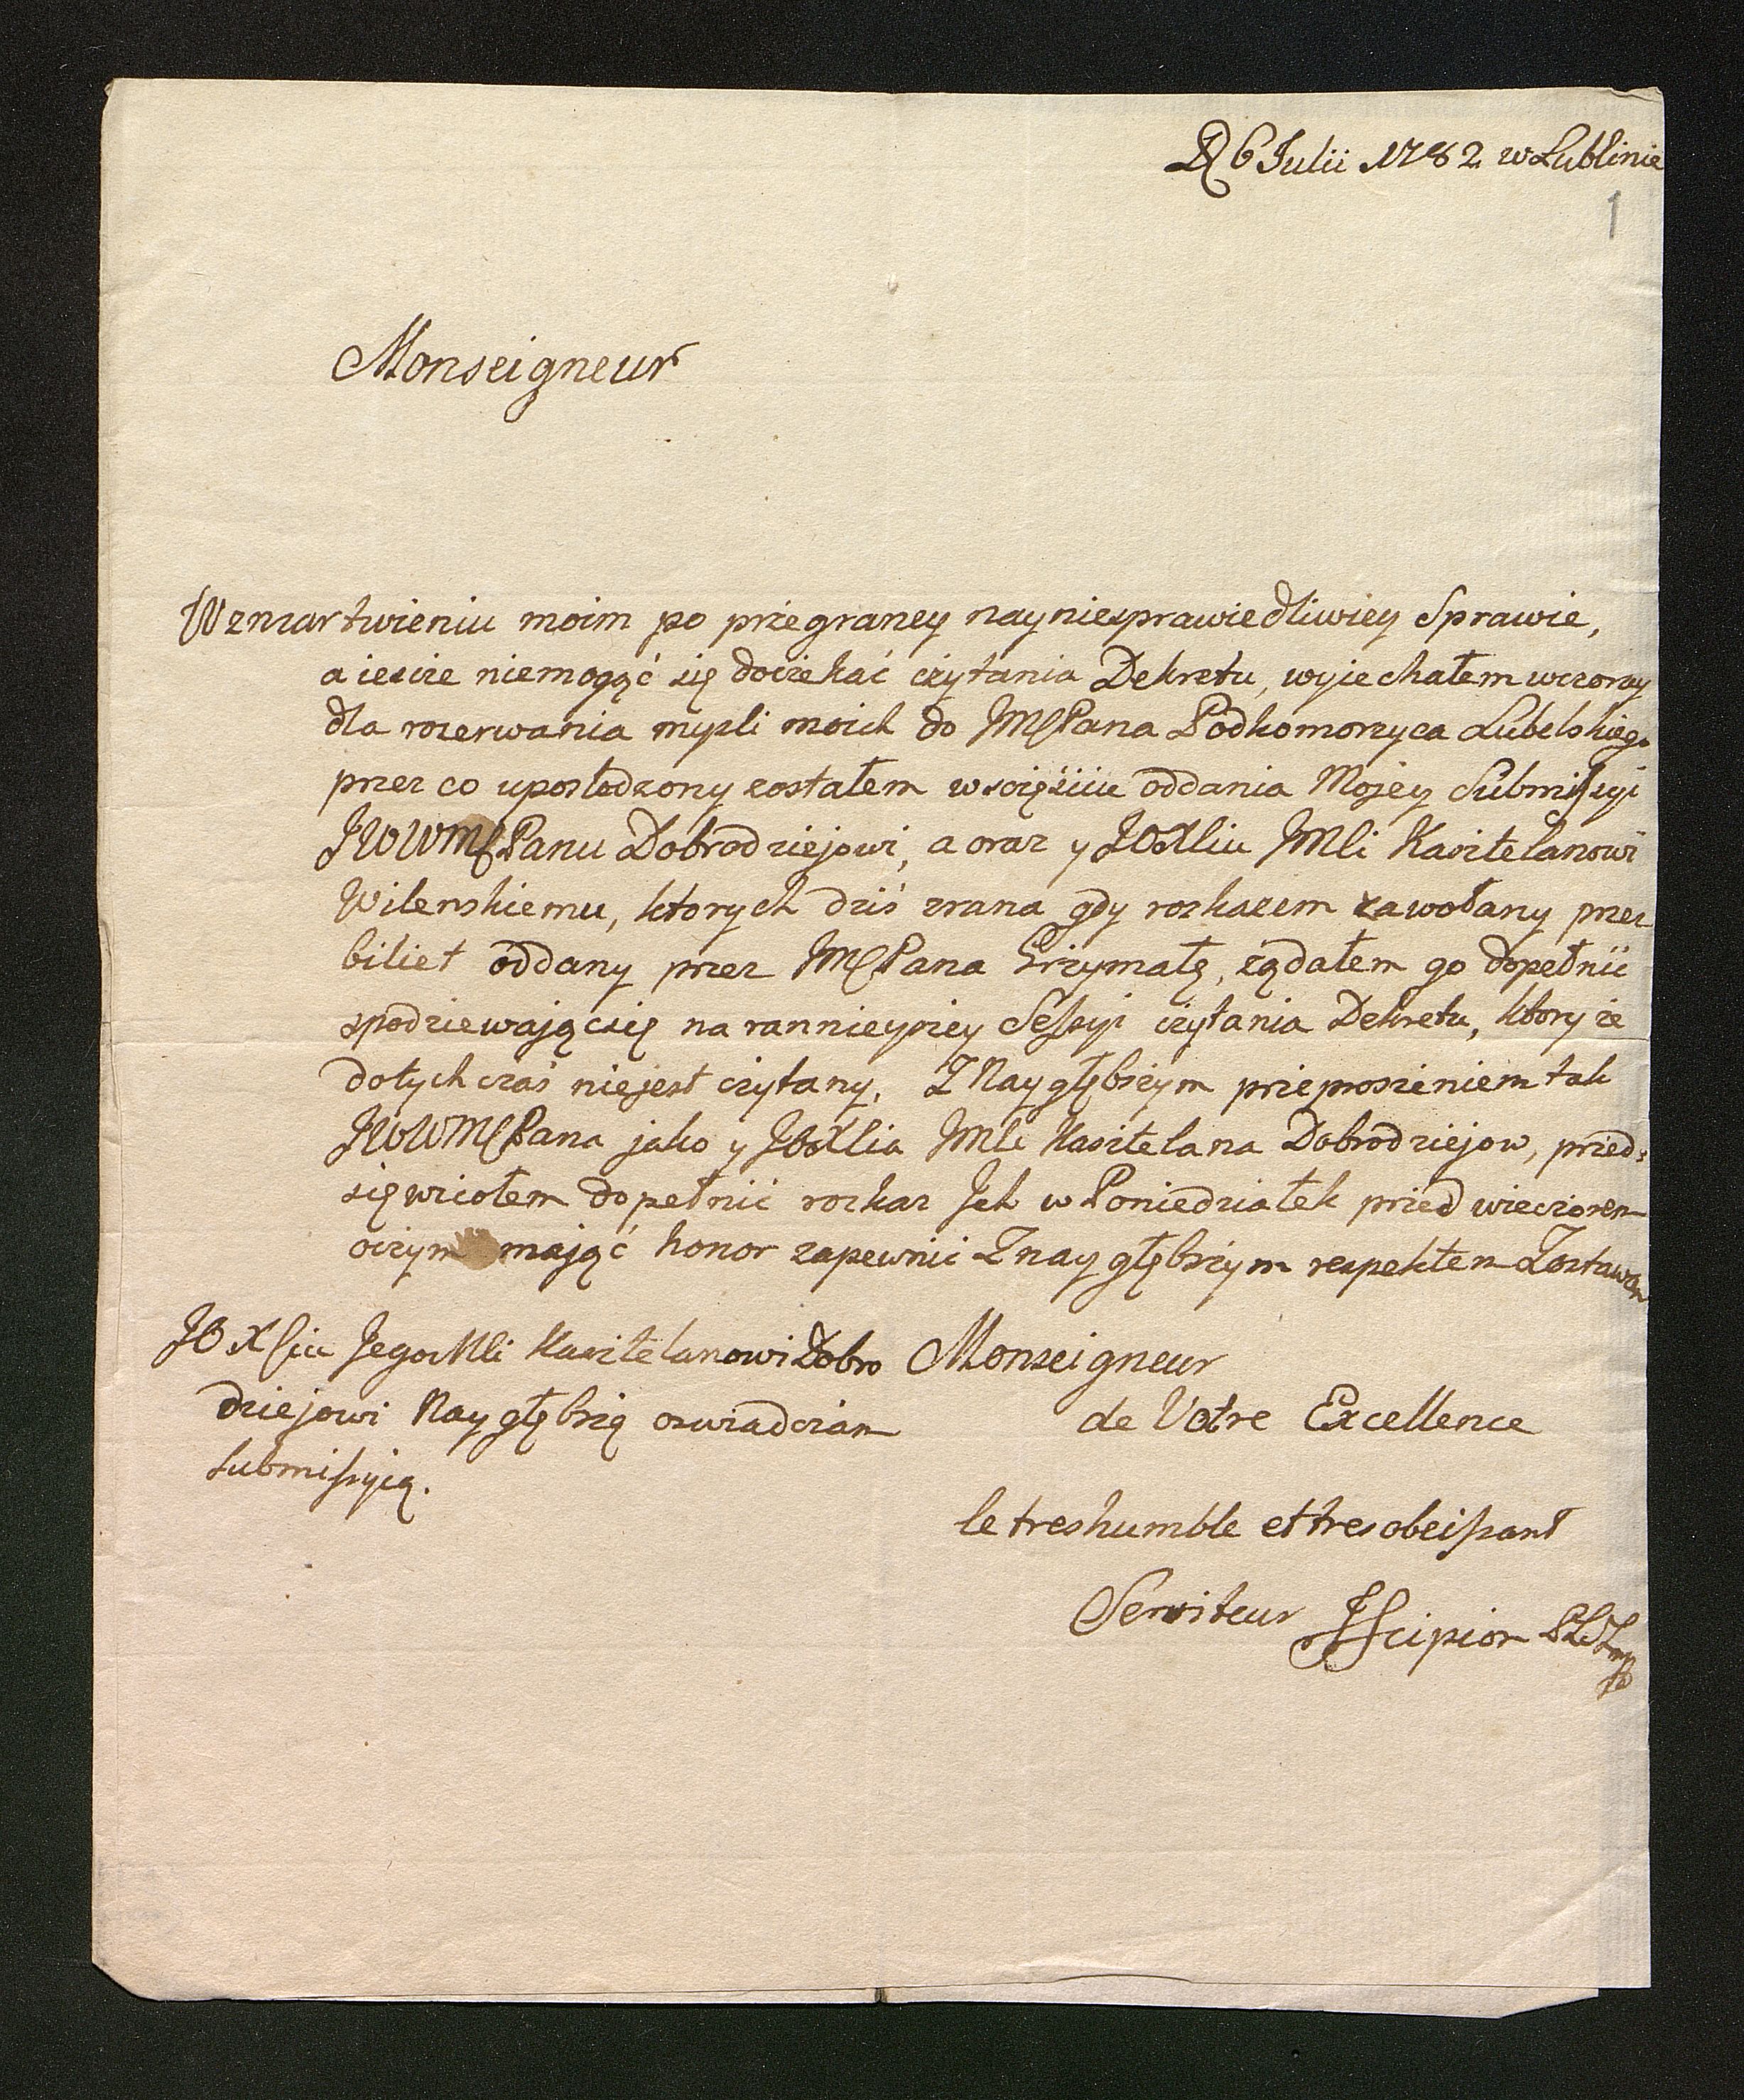 D 6 Julii 1782 w Lublinie
1
Monseigneur
W zmartwieniu moim po przegraney nayniesprawiedliwiey Sprawie,
a iescze niemogąć się doczekać czytania Dekretu, wyjechałem wczoray
dla rozerwania mysli moich do JMSPana Podkomorzyca Lubelskiego
przez co uposledzony zostałem w sczęściu oddania Mojey Submissyi
JWWMSPanu Dobrodziejowi, a oraz y JOXciu JMci Kasztelanowi
Wilenskiemu, ktorych dziś zrana gdy rozkazem zawołany przez
biliet oddany przez JMSPana Grzymałę, żądałem go dopełnić
spodziewając się na rannieyszey Sessyi czytania Dekretu, ktory że
dotychczaś niejest czytany. Z Naygłębszym przeproszeniem tak
JWWMSPana jako y JOXcia JMci Kasztelana Dobrodziejow, przed-
sięwziołem dopełnić rozkaz Jch w Poniedziałek przed wieczorem
oczym mająć honor zapewnić Z naygłębszym respektem Zostawam
JO Xciu JegoMci Kasztelanowi Dobro Monseigneur
dziejowi Naygłębszą oswiadczam de Votre Excellence
submissyią.
le treshumble et tres obeissant
Serviteur JScipion